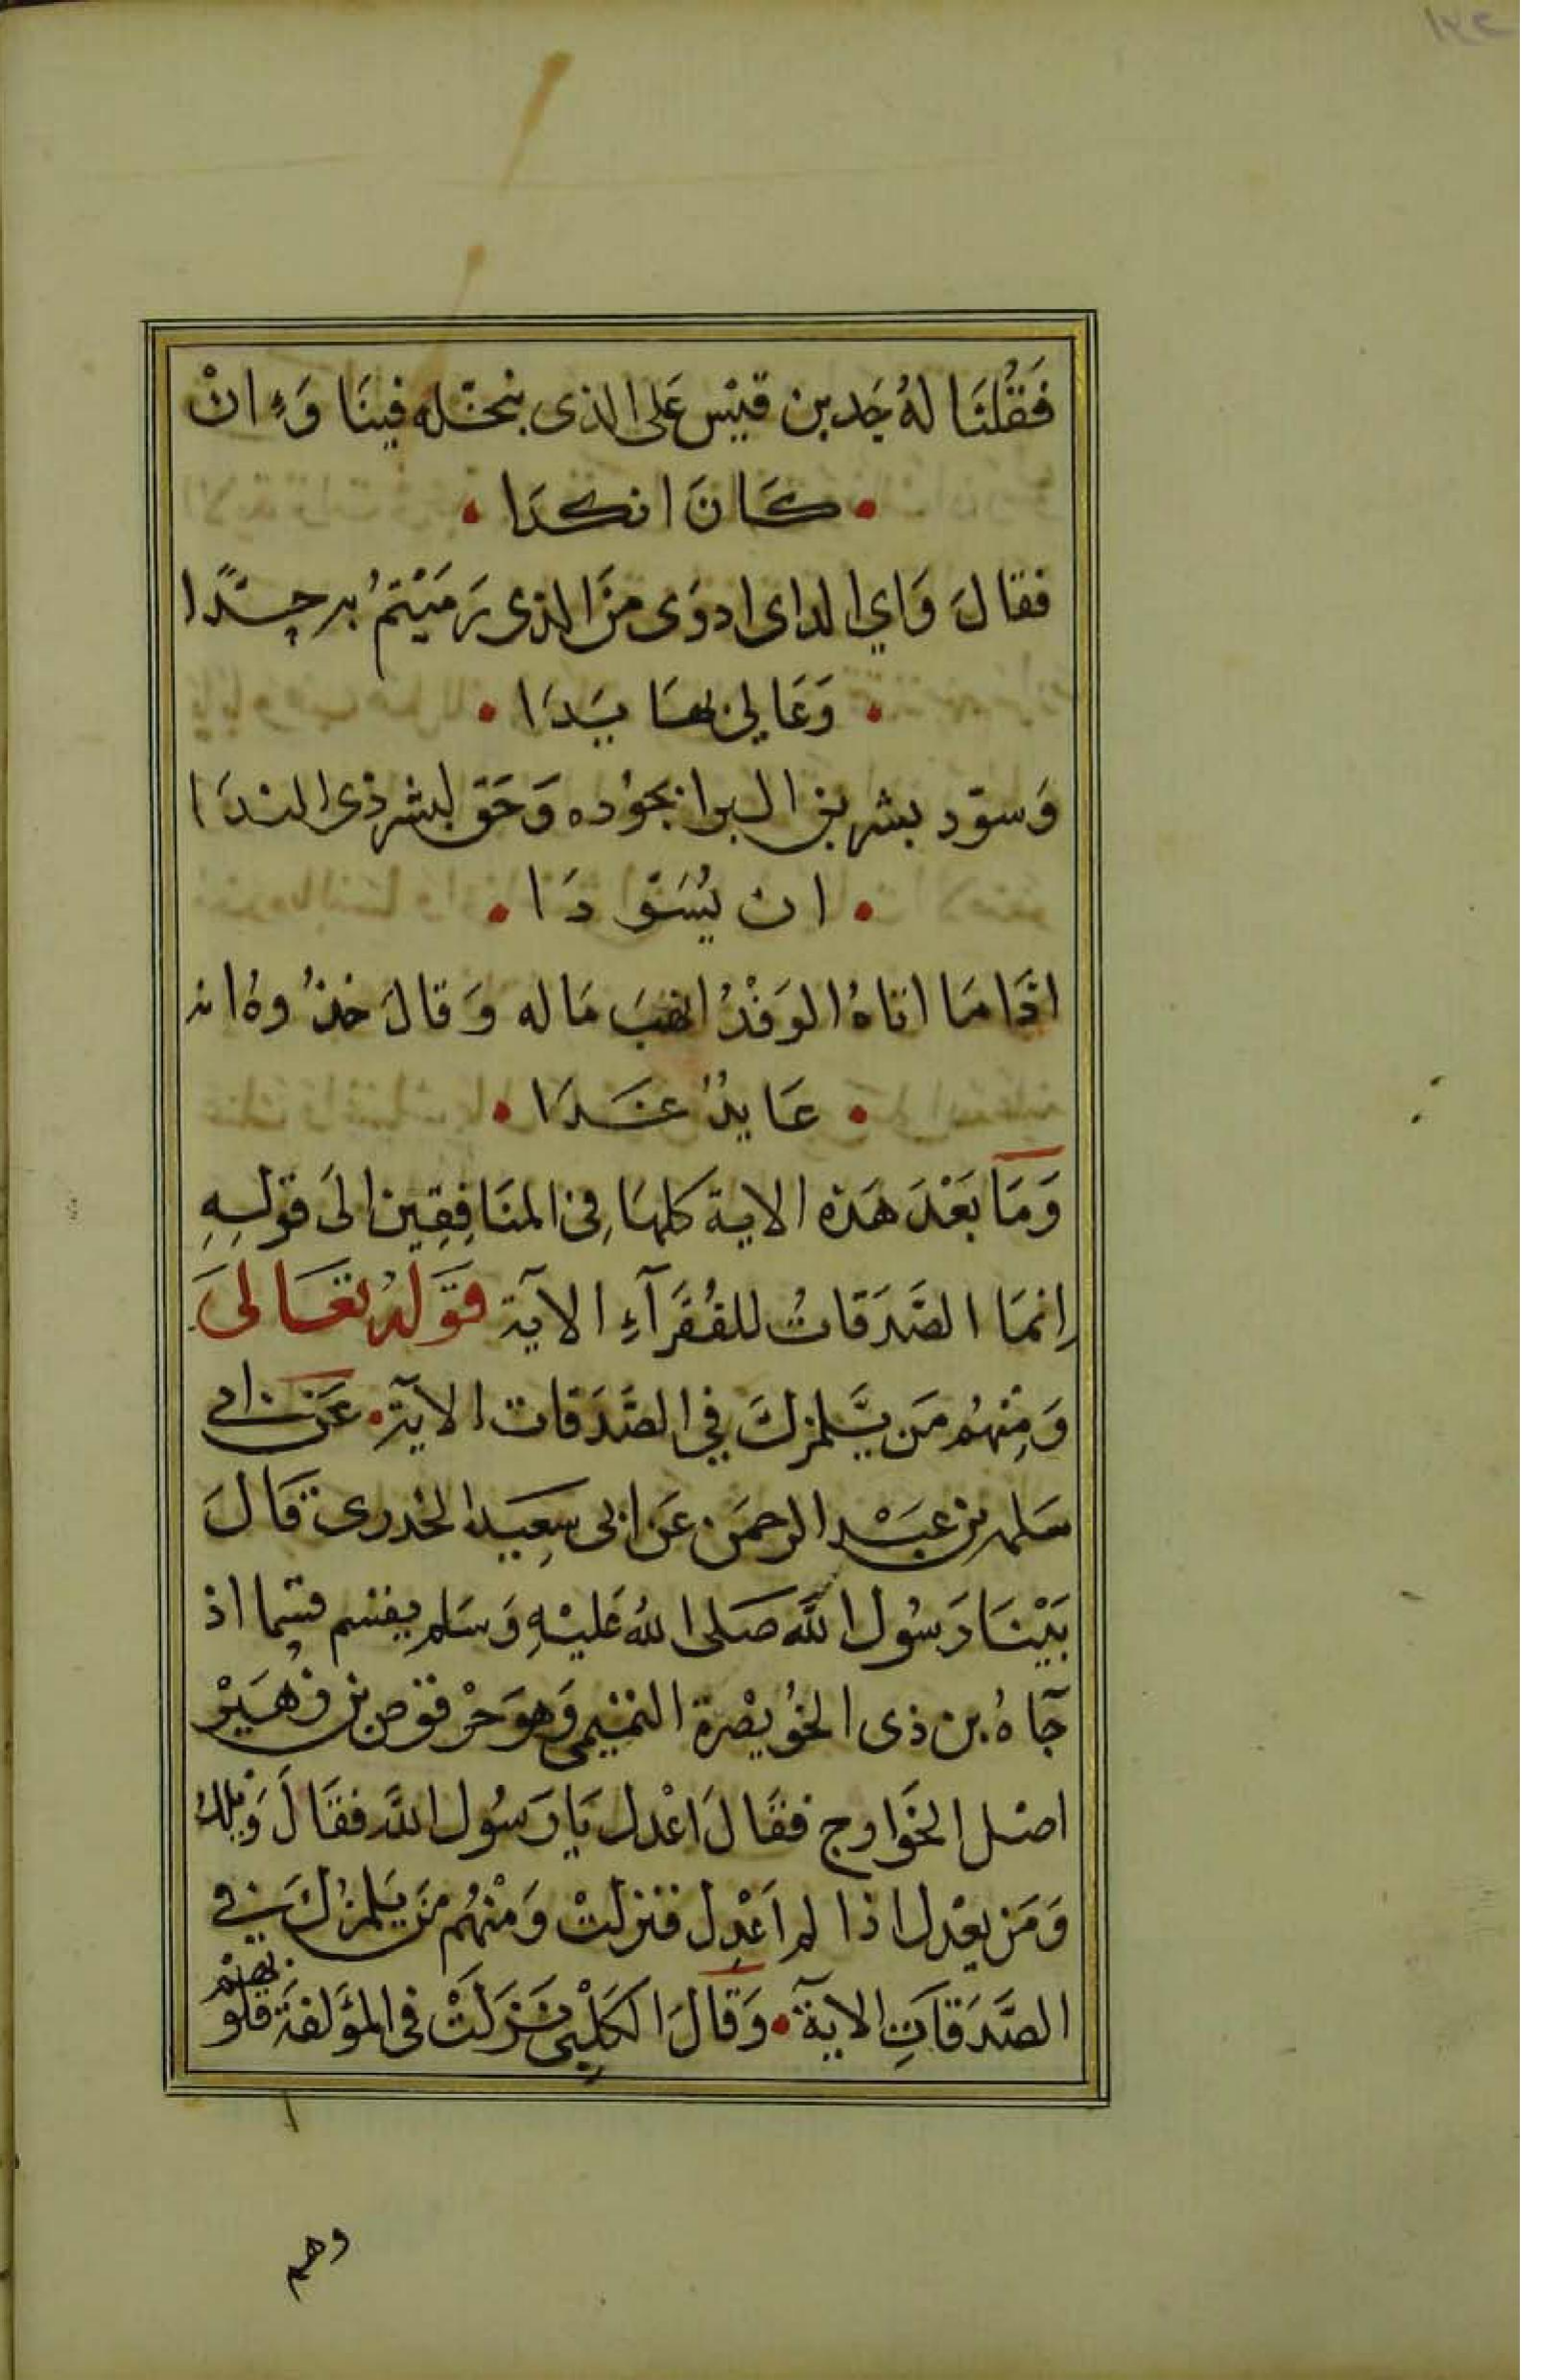 فَقُلْنَا لهُ جَد بن قَيْس عَلى الذى نبخّله فينَا وَءِ انْ
كَانَ انكدَا
فقالَ وَاي الداى ادوَى منَ الذى رَمَيْتمُ به جدًا
وَعَالى بهَا يَدَا
وَسوّد بشر بن البرا بجوُده وَحَق لبشر ذى الندَا
ان يُسَوّدَا
اذَا مَا اتاهُ الوَفْدُ انهبَ مَاله وَقالَ خذُوهُ انه
عَايدٌ غَدَا
وَمَا بَعْدَ هَذه الاية كلهَا فِى المنَافِقِين الىَ قولِهِ
اِنمَا الصَّدَقاتُ للفُقَرَآءِ الآيَة قَوَلهُ تعَالىَ
وَمِنهُم مَن يَّلمزكَ فِي الصَّدَقات الآيَة عَن ابى
سَلمه بن عَبْد الرحمَن عَن ابى سَعِيد الخدرى قَالَ
بَيْنَا رَسُول اللَّه صَلى اللهُ عَليْهِ وَسَلم يقسم قسِما اذ
جَآهُ بن ذى الخُوَيصْرة التمَيمى وَهوَ حَرْقوُص بن زهَيْر
اصْل الخَوَارج فقَالَ اعْدل يَا رَسُول اللَّه فقَالَ وَيْلكَ
وَمَن يعْدل اذا لم اَعْدِل فنزلتْ وَمنْهُم مَن يَلمزكَ فى
الصَّدَقَاتِ الايَة وَقَالَ الكَلْبِى نَزَلَتْ فى المؤَلفَة قلوبهم
وهم